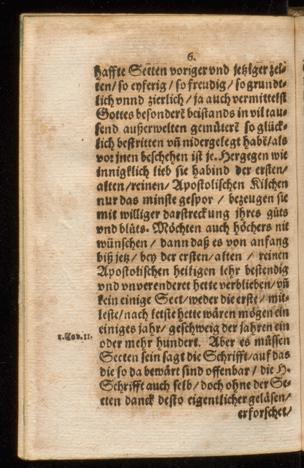 6.
haffte Secten voriger vnd jetziger zei-
ten/ so eyferig/ so freudig/ so grundt-
lich vnnd zierlich/ ja auch vermittelst
Gottes besonders beistands in vil tau-
send außerwelten gemüters so glück-
lich bestritten vñ nidergelegt habẽ/ als
vor jnen beschehen ist je. Hergegen wie
innigklich lieb sie habind der ersten/
alten/ reinen/ Apostolischen Kilchen
nur das minste gespor/ bezeugen sie
mit williger darstreckung ihres gůts
vnd blůts. Möchten auch höchers nit
wünschen/ dann daß es von anfang
biß jetz/ bey der ersten/ alten/ reinen
Apostolischen heiligen lehr bestendig
vnd vnverenderet hette verblieben/ vñ
kein einige Sect/ weder die erst/ mit-
leste/ nach letste hette wären mögen ein
einiges jahr/ geschweig der jahren ein
1.Cor.11. oder mehr hundert. Aber es müssen
Secten sein sagt die Schrifft/ auf das
die so da bewärt sind offenbar/ die H.
Schrifft auch selb/ doch ohne der Se-
cten danck desto eigentlicher geläsen/
erforschet/